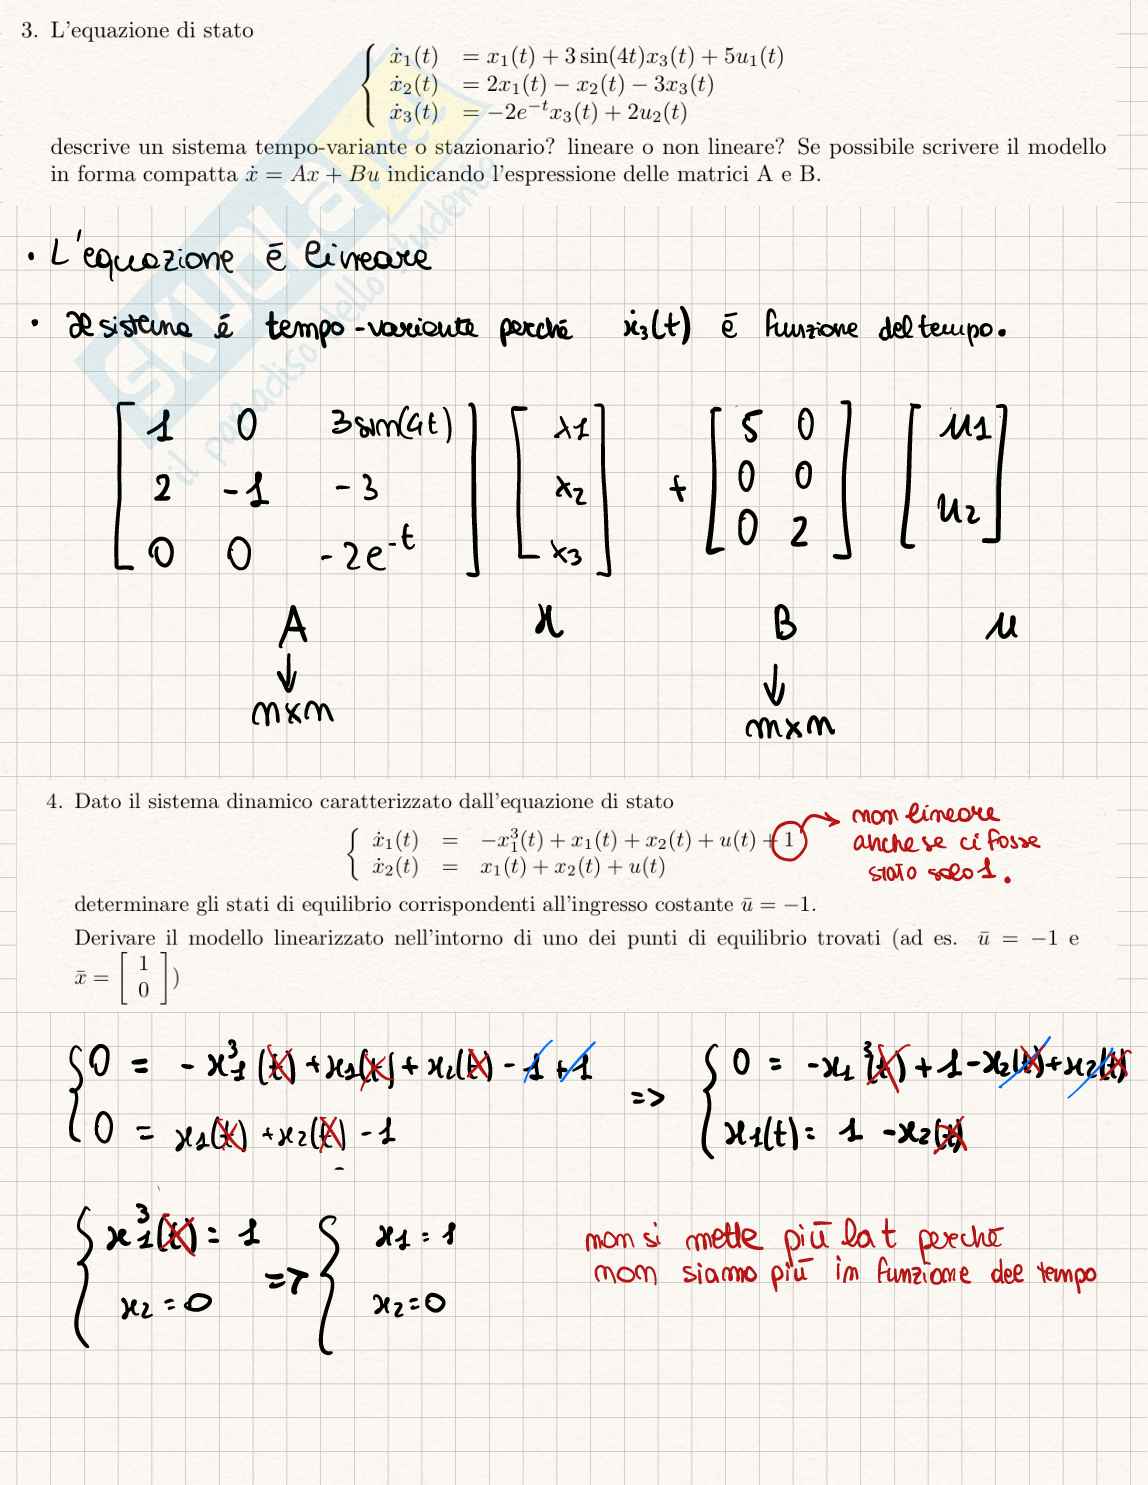 3. L'equazione di stato
ẋ₁(t) = x₁(t) + 3 sin(4t)x₃(t) + 5u₁(t)
ẋ₂(t) = 2x₁(t) − x₂(t) − 3x₃(t)
ẋ₃(t) = −2e⁻ᵗx₃(t) + 2u₂(t)
descrive un sistema tempo-variante o stazionario? lineare o non lineare? Se possibile scrivere il modello
in forma compatta ẋ = Ax + Bu indicando l'espressione delle matrici A e B.
• L'equazione è lineare
• Il sistema è tempo-variante perché ẋ₃(t) è funzione del tempo.
[1 0 3sin(4t)] [x1] [5 0] [u1]
[2 -1 -3] [x2] + [0 0]
[0 0 -2e⁻ᵗ] [x3] [0 2] [u2]
A x B u
↓ ↓
m×m m×m
4. Dato il sistema dinamico caratterizzato dall'equazione di stato
ẋ₁(t) = −x₁³(t) + x₁(t) + x₂(t) + u(t) + 1
ẋ₂(t) = x₁(t) + x₂(t) + u(t)
non lineare
anche se ci fosse
stato solo 1.
determinare gli stati di equilibrio corrispondenti all'ingresso costante ū = −1.
Derivare il modello linearizzato nell'intorno di uno dei punti di equilibrio trovati (ad es. ū = −1 e
x̄ = [1 0])
0 = - x₁³(t) + x₁(t) + x₂(t) - 1 + 1 => 0 = -x₁³(t) + 1 - x₂(t) + x₂(t)
0 = x₁(t) + x₂(t) - 1 x₁(t) = 1 - x₂(t)
x₁³(t) = 1 => x1 = 1
x2 = 0 x2 = 0
non si mette più la t perché
non siamo più in funzione del tempo
SKUOLA.net
il paradiso dello studente